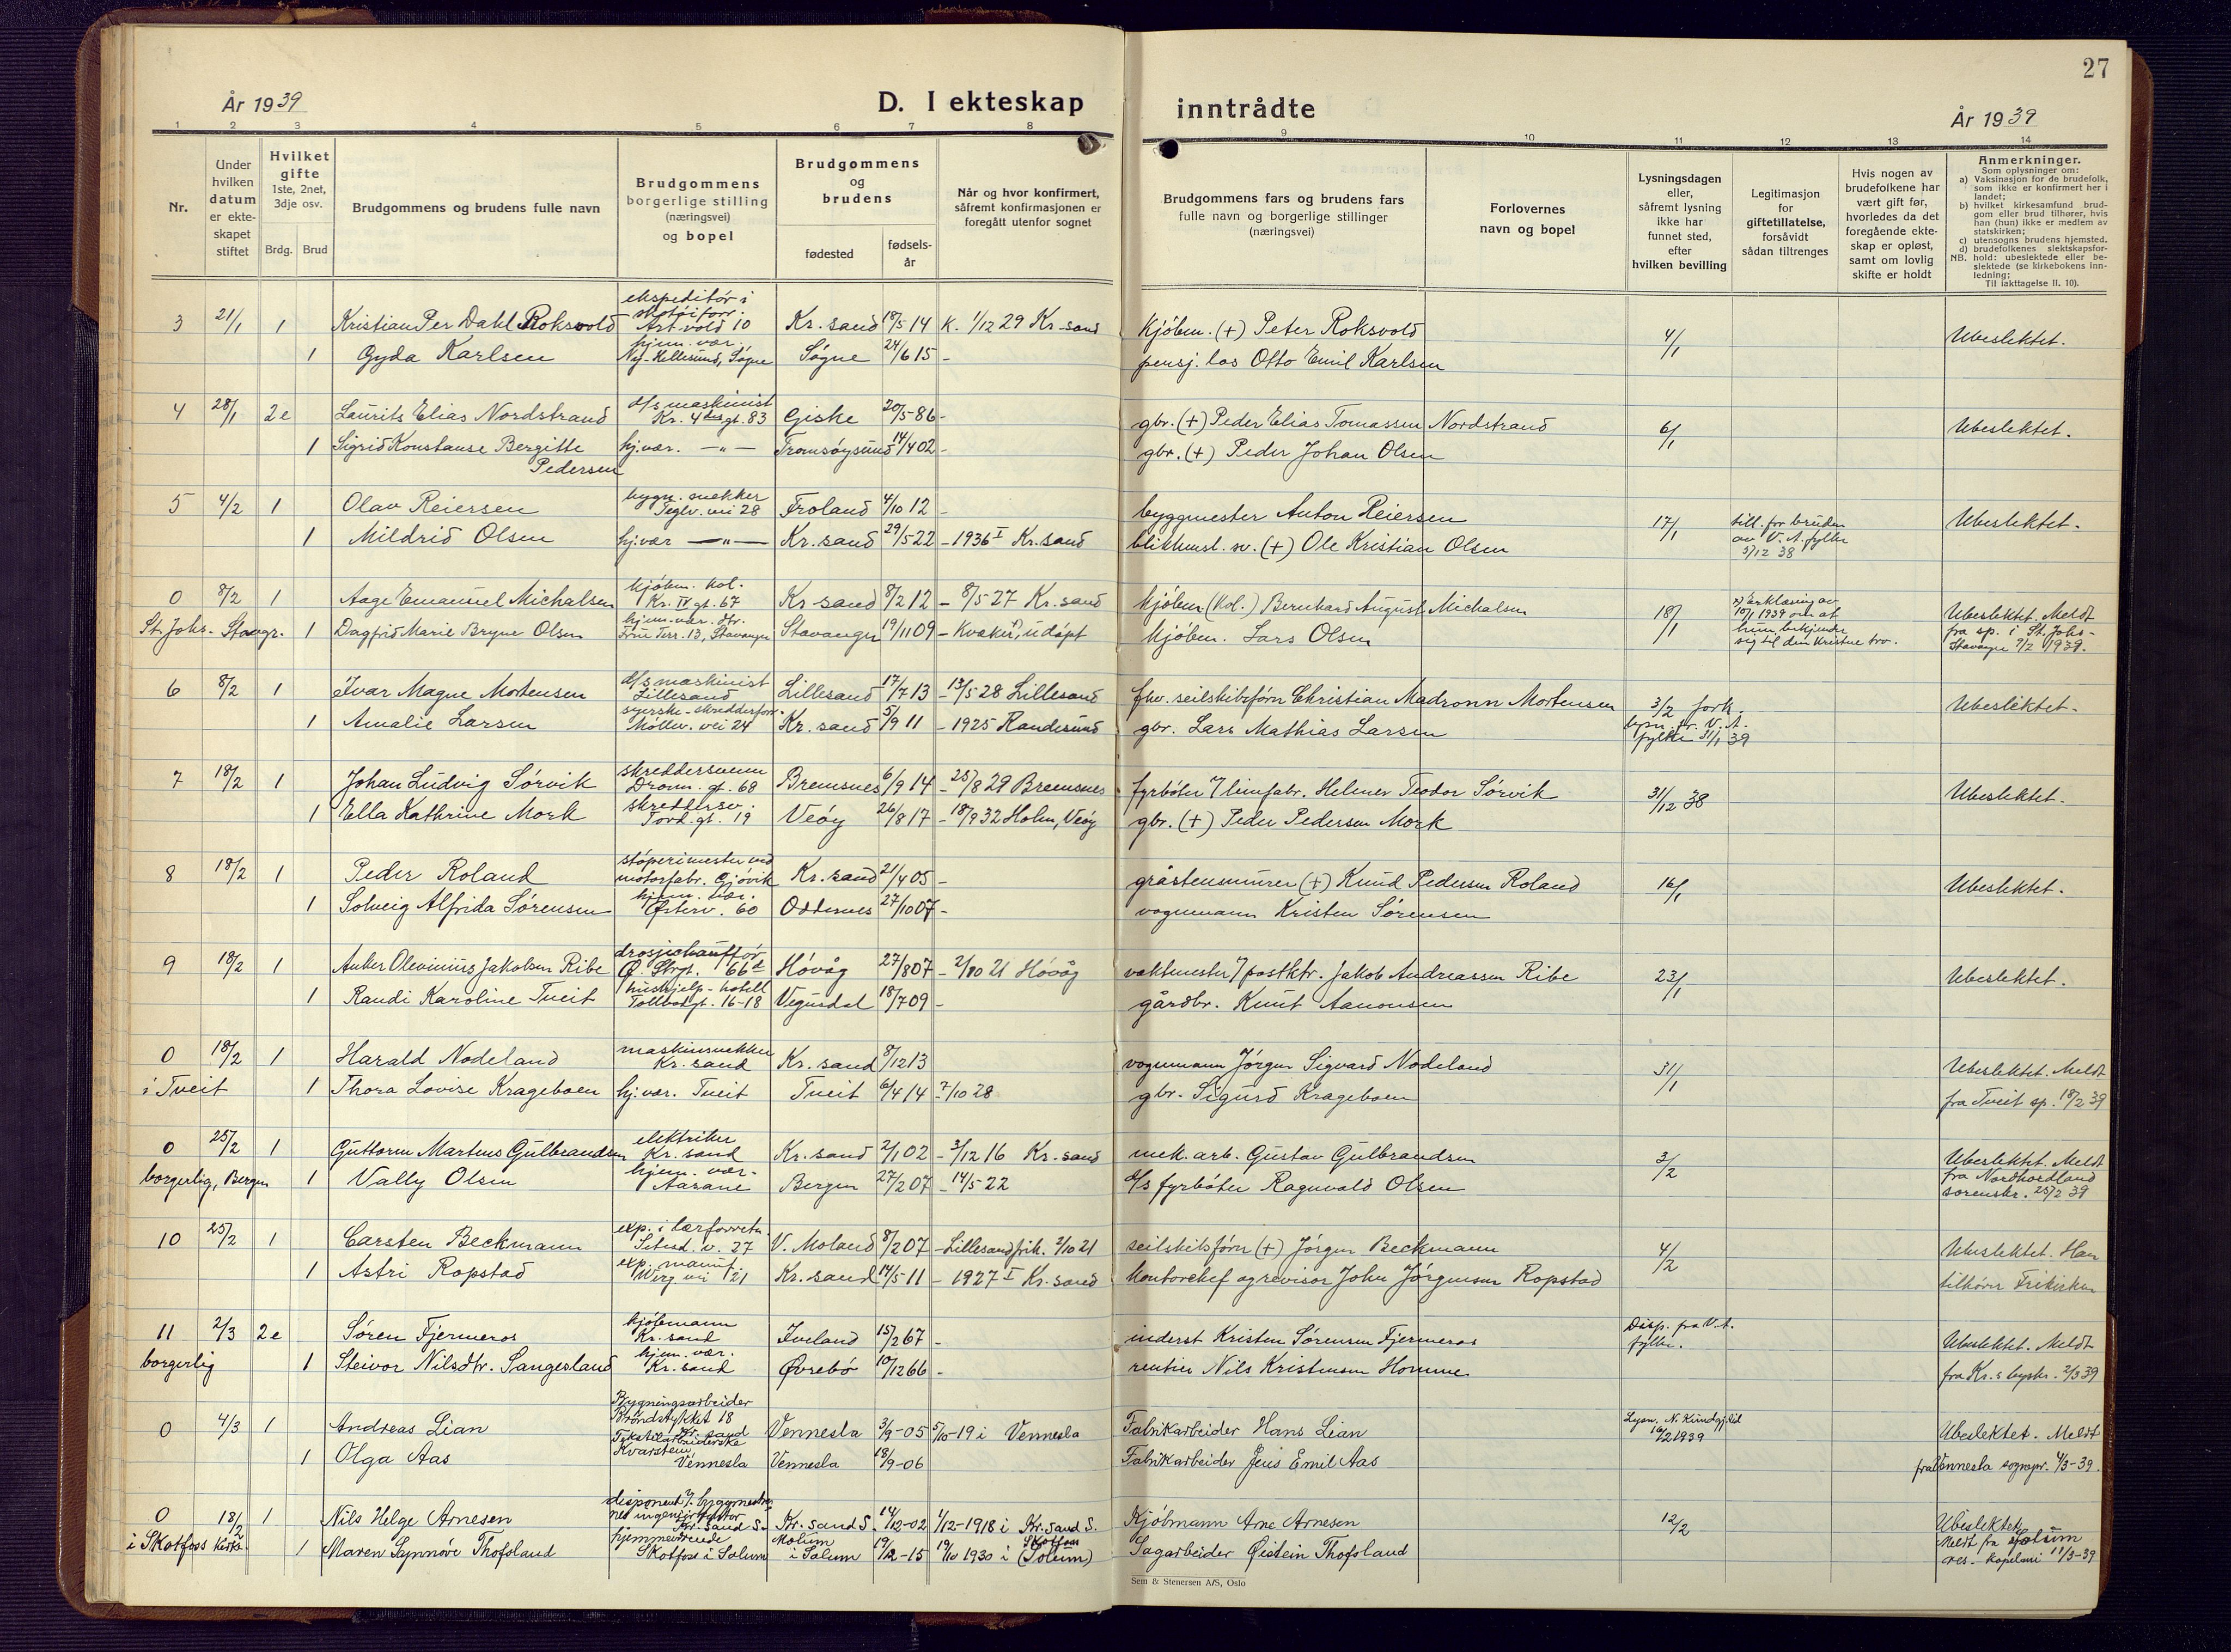 27
År 1939
D. I ekteskap inntrådte
År 1939
1 2 3 4 5 6 7 8 9 10 11 12 13 14
Nr.
Under hvilken datum er ekte-skapet stiftet
Hvilket gifte 1ste, 2net, 3dje osv.
Brdg. Brud
Brudgommens og brudens fulle navn
Brudgommens borgerlige stilling (næringsvei) og bopel
Brudgommens og brudens
fødested
fødsels-år
Når og hvor konfirmert, såfremt konfirmasjonen er foregått utenfor sognet
Brudgommens fars og brudens fars fulle navn og borgerlige stillinger (næringsvei)
Forlovernes navn og bopel
Lysningsdagen eller, såfremt lysning ikke har funnet sted, efter hvilken bevilling
Legitimasjon for giftetillatelse, forsåvidt sådan tiltrenges
Hvis nogen av brudefolkene har vært gift før, hvorledes da det foregående ekte-skap er opløst, samt om lovlig skifte er holdt
Anmerkninger.
Som oplysninger om:
a) Vaksinasjon for de brudefolk, som ikke er konfirmert her i landet;
b) hvilket kirkesamfund brud-gom eller brud tilhører, hvis han (hun) ikke er medlem av statskirken;
c) utensogns brudens hjemsted.
d) brudefolkenes slektskapsfor-hold: ubeslektede eller be-slektede (se kirkebokens inn-ledning;
NB. Til iakttagelse II. 10).
3 21/1 1 Kristian Per Dahl Roksvold ekspeditør i skotøiforr. Art. vold 10 Kr. sand 18/5 14 K. 1/12 29 Kr. sand Kjøbm. (+) Peter Roksvold 4/1 Ubeslektet.
1 Gyda Karlsen hjem. vær. Ny-Hellesund, Søgne Søgne 24/6 15 - pensj. los Otto Emil Karlsen
4 28/1 2e Laurits Elias Nordstrand d/s maskinist Kr. 4des gt. 83 Giske 20/5 86 - gbr. (+) Peder Elias Tomassen Nordstrand 6/1 Ubeslektet.
1 Sigrid Konstanse Bergitte Pedersen hj. vær. -"- Tromsøysund 14/4 02 - gbr. (+) Peder Johan Olsen
5 4/2 1 Olav Reiersen bygn. snekker Teglv. vei 28 Froland 4/10 12 - byggmester Anton Reiersen 17/1 till. for bruden av V. A. fylke 5/12 38 Ubeslektet.
1 Mildrid Olsen hj. vær -"- Kr. sand 29/5 22 - 1936 I Kr. sand blikkensl. sv. (+) Ole Kristian Olsen
0 8/2 1 Aage Emanuel Michalsen kjøbm. kol. Kr. IV gt. 67 Kr. sand 8/2 12 - 8/5 27 Kr. sand Kjøbm. (kol.) Bernhard August Michalsen 18/1 x) erklæring av 10/1 1939 om at hun bekjender sig til den kristne tro. Ubeslektet. Meldt fra sp. i St. Johs-Stavanger 9/2 1939.
St. Johs. Stavgr. 1 Dagfrid Marie Bryne Olsen hjem. vær. Terr. 13, Stavanger Stavanger 19/11 09 - Kvæker x), udøpt Kjøbm. Lars Olsen
6 8/2 1 Ivar Magne Mortensen d/s maskinist Lillesand Lillesand 17/7 13 - 13/5 28 Lillesand fhv. seilskibsførn Christian Madronn Mortensen 3/2 fork. lysn. fr. V. A. fylke 31/1 39 Ubeslektet.
1 Amalie Larsen syerske - skredderforr. Møllev. vei 24 Kr. sand 5/9 11 - 1925 Randesund gbr. Lars Mathias Larsen
7 18/2 1 Johan Ludvig Sørvik skreddersvenn Dronn. gt. 68 Bremsnes 6/9 14 - 25/8 29 Bremsnes fyrbøter v/ limfabr. Helmer Teodor Sørvik 31/12 38 Ubeslektet.
1 Ella Kathrine Mork skreddersv. Tord. gt. 19 Veøy 26/8 17 - 18/9 32 Holm, Veøy gbr. (+) Peder Pedersen Mork
8 18/2 1 Peder Roland støperimester ved motorfabr. Gjøvik Kr. sand 21/4 05 - gråstensmurer (+) Knud Pedersen Roland 16/1 Ubeslektet.
1 Solveig Alfrida Sørensen hjem. vær. Østerv. 60 Oddernes 27/10 07 - vognmann Kristen Sørensen
9 18/2 1 Anker Olevinius Jakobsen Ribe drosjechauffør Ø. Strgt. 66d Høvåg 27/8 07 - 2/10 21 Høvåg vaktmester v/ postktr. Jakob Andreassen Ribe 23/1 Ubeslektet.
1 Randi Karoline Tveit hushjelp - hotell Tollbodgt. 16-18 Vegusdal 18/7 09 - gårdbr. Knut Aanonsen
0 18/2 1 Harald Nodeland maskinsnekker Kr. sand Kr. sand 8/12 13 vognmann Jørgen Sigvard Nodeland 31/1 Ubeslektet. Meldt
i Tveit 1 Thora Lovise Krageboen hj. vær. Tveit Tveit 6/4 14 7/10 28 gbr. Sigurd Krageboen fra Tveit sp. 18/2 39
0 25/2 1 Guttorm Martens Gulbrandsen elektriker Kr. sand Kr. sand 2/1 02 - 3/12 16 Kr. sand mek. arb. Gustav Gulbrandsen 3/2 Ubeslektet. Meldt fra Nordhordland sorenskr. 25/2 39
borgerlig, Bergen 1 Vally Olsen hjem. vær. Aasane Bergen 27/2 07 - 14/5 22 d/s fyrbøter Ragnvald Olsen
10 25/2 1 Carsten Beckmann exp. i lærforretn. Setesd. v. 27 V. Moland 8/2 07 - Lillesand frik. 2/10 21 seilskibsførn (+) Jørgen Beckmann 4/2 Ubeslektet. Han
1 Astri Ropstad exp. manuf. Werg. vei 21 Kr. sand 14/5 11 - 1927 I Kr. sand kontorchef og revisor John Jørgensen Ropstad tilhører Frikirken
11 2/3 2e Søren Fjermeros kjøbmann Kr. sand Iveland 15/2 67 - inderst Kristen Sørensen Fjermeros Disp. fra V. A. fylke. Ubeslektet. Meldt
borgerlig 1 Steivor Nilsdtr. Sangesland hjem. vær. Kr. sand Øvrebø 10/12 66 - rentier Nils Kristensen Homme fra Kr. s byskr. 2/3 39
0 4/3 1 Andreas Lian Bygningsarbeider Brøndstykket 18 Kr. sand Vennesla 3/9-05 5/10-19 i Vennesla Fabrikarbeider Hans Lian Lysn. N. Kundgj. 16/2 1939 Ubeslektet. Meldt
1 Olga Aas Tekstilarbeiderske Kvarstein Vennesla Vennesla 18/9-06 Fabrikarbeider Jens Emil Aas fra Vennesla sognepr. 4/3-39.
0 18/2 1 Nils Helge Arnesen disponent, byggmester Kr. sand S. Kr. sand S. 14/12-02 1/12-1918 i Kr. sand S. Kjøbmann Arne Arnesen 12/2 Ubeslektet.
i Skotfoss kirke. 1 Maren Synnøve Thofsland hjemmeværende Skotfoss i Solum Molum i Solum 19/12-15 19/10 1930 i Skotfoss (Solum) Sagarbeider Øistein Thofsland Meldt fra Solum res. kapelani 11/3-39
Sem & Stenersen A/S, Oslo